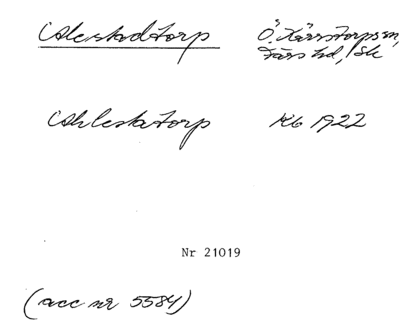 Alestadtorp Ö. Kärrstorps sn,
Färs hd, Sk
Ahlestatorp Kb 1922
Nr 21019
(acc nr 5584)